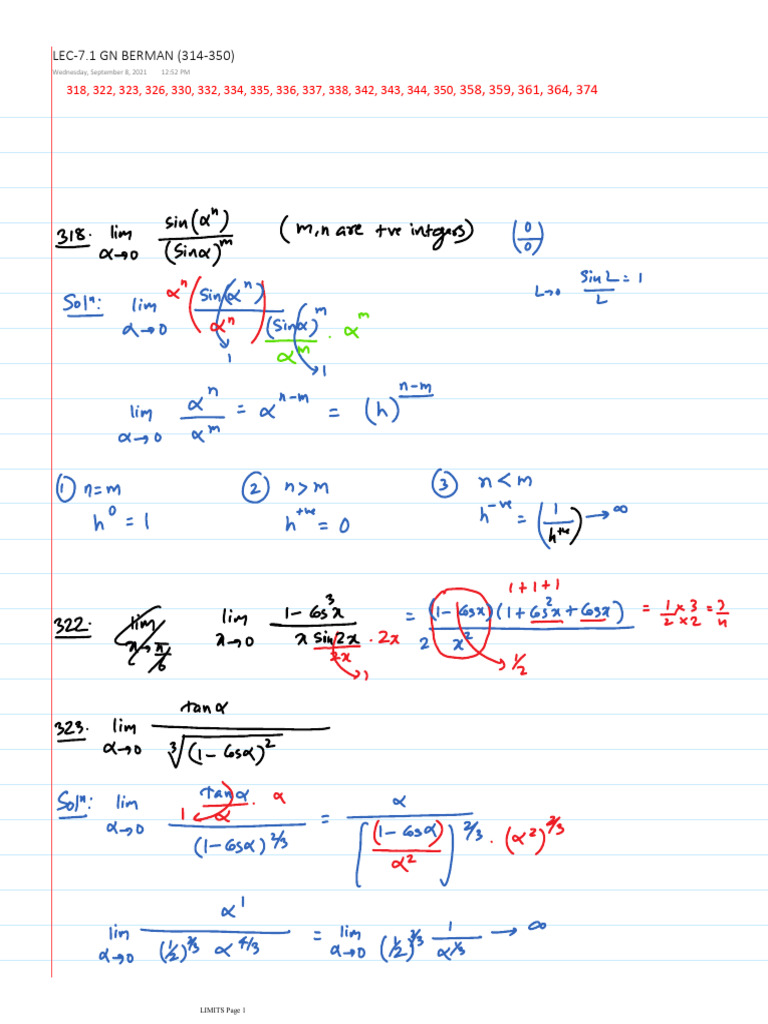 LEC-7.1 GN BERMAN (314-350)
Wednesday, September 8, 2021 12:52 PM
318, 322, 323, 326, 330, 332, 334, 335, 336, 337, 338, 342, 343, 344, 350, 358, 359, 361, 364, 374
318. lim α→0 sin(α^n) / (sinα)^m (m,n are +ve intgers) (0/0)
L→0 sinL/L = 1
Solⁿ: lim α→0 α^n (sin(α^n) / α^n) / ((sinα)^m / α^m · α^m) → 1 → 1
lim α→0 α^n / α^m = α^(n-m) = (h)^(n-m)
① n=m ② n>m ③ n<m
h^0 = 1 h^(+ve) = 0 h^(-ve) = (1/h^(+ve)) → ∞
1+1+1
322. lim x→0 (1-cos^3 x) / (x sin2x/2x · 2x) = (1-cosx)(1+cos^2 x+cosx) / 2 x^2 → 1/2 = (1×3)/(2×2) = 3/4
323. lim α→0 tanα / ∛(1-cosα)^2
Solⁿ: lim α→0 (tanα/α · α) / (1-cosα)^(2/3) = α / [(1-cosα)/α^2]^(2/3) · (α^2)^(2/3)
lim α→0 α^1 / ((1/2)^(2/3) α^(4/3)) = lim α→0 1 / ((1/2)^(2/3) α^(1/3)) → ∞
LIMITS Page 1